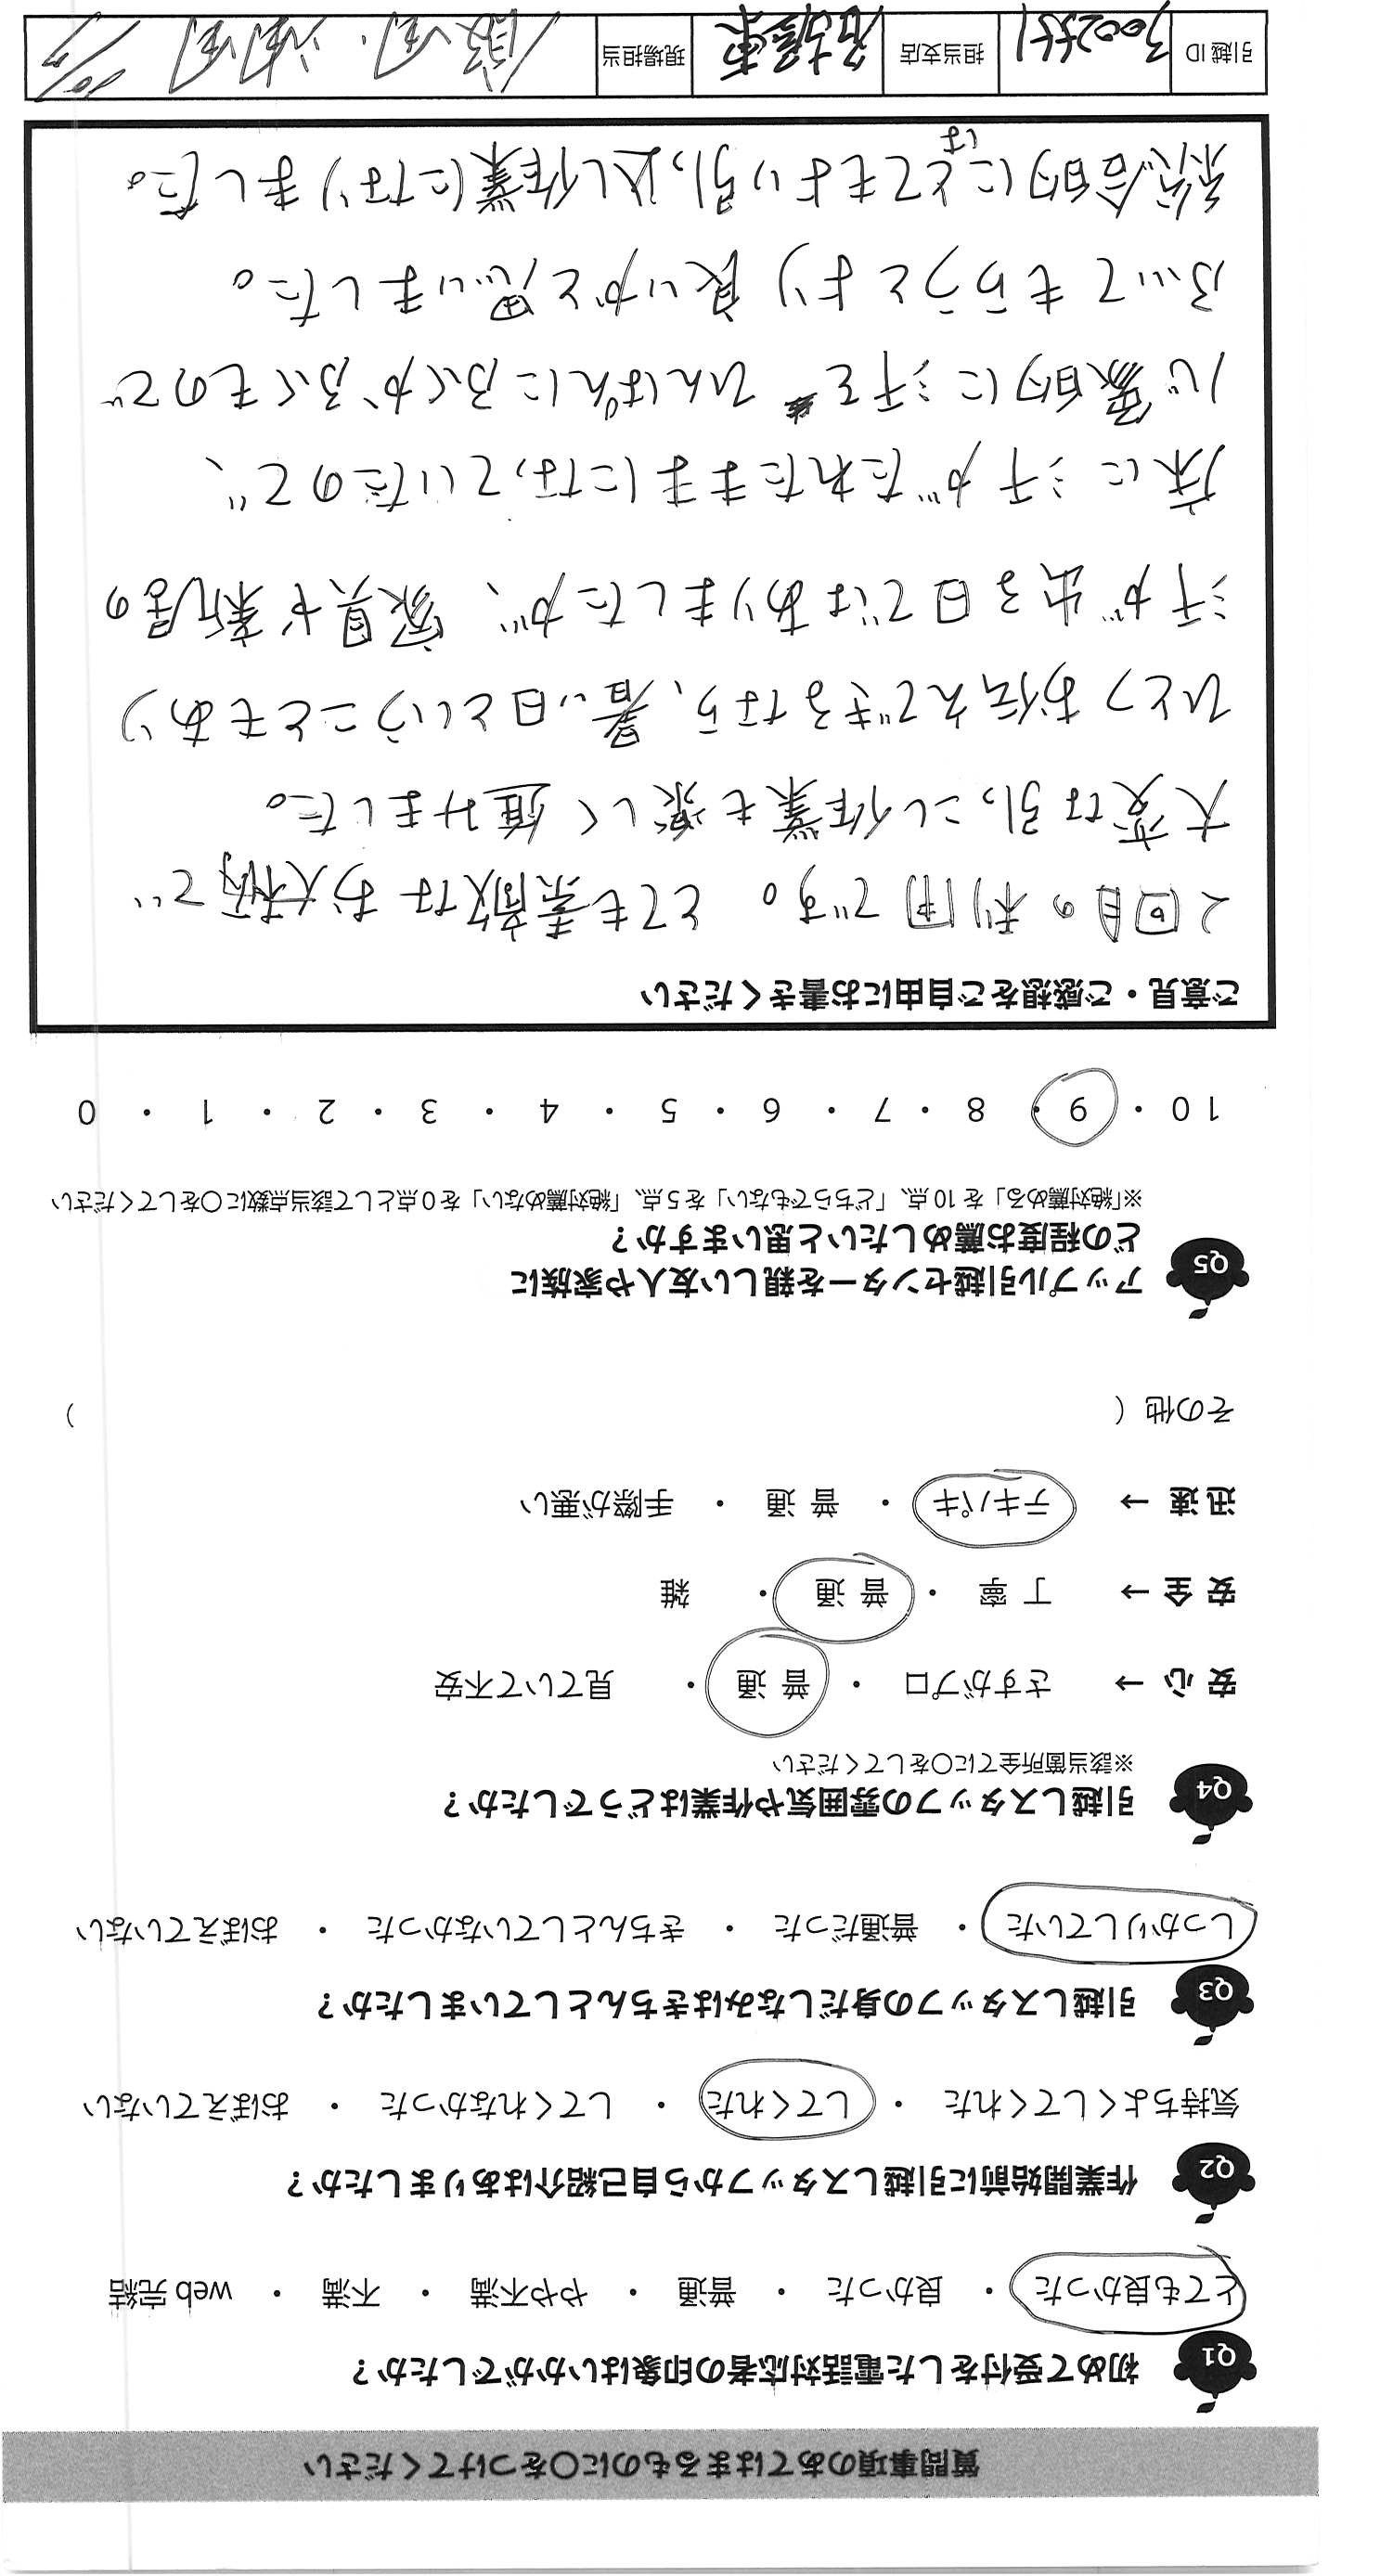 質問事項のあてはまるものに〇をつけてください
Q1 初めて受付をした電話対応者の印象はいかがでしたか？
とても良かった ・ 良かった ・ 普通 ・ やや不満 ・ 不満 ・ web 完結
Q2 作業開始前に引越しスタッフから自己紹介はありましたか？
気持ちよくしてくれた ・ してくれた ・ してくれなかった ・ おぼえていない
Q3 引越しスタッフの身だしなみはきちんとしていましたか？
しっかりしていた ・ 普通だった ・ きちんとしていなかった ・ おぼえていない
Q4 引越しスタッフの雰囲気や作業はどうでしたか？
※該当箇所全てに〇をしてください
安 心 → さすがプロ ・ 普 通 ・ 見ていて不安
安 全 → 丁 寧 ・ 普 通 ・ 雑
迅 速 → テキパキ ・ 普 通 ・ 手際が悪い
その他（ ）
Q5 アップル引越センターを親しい友人や家族に
どの程度お薦めしたいと思いますか？
※「絶対薦める」を 10 点、「どちらでもない」を 5 点、「絶対薦めない」を 0 点として該当点数に〇をしてください
10 ・ 9 ・ 8 ・ 7 ・ 6 ・ 5 ・ 4 ・ 3 ・ 2 ・ 1 ・ 0
ご意見・ご感想をご自由にお書きください
2回目の利用です。 とても素敵なお人柄で
大変な引っこし作業も楽しく進みました。
ひとつお伝えできるなら、暑い日ということもあり
汗が出る日ではありましたが、家具や新居の
床に汗がたれたままになっていたので、
心象的に汗を ひんぱんにふくかふくもので
ふいてもらうとより良いかと思いました。
総合的にはとてもよい引っ越し作業になりました。
引越 ID 担当支店 名古屋東 現場担当